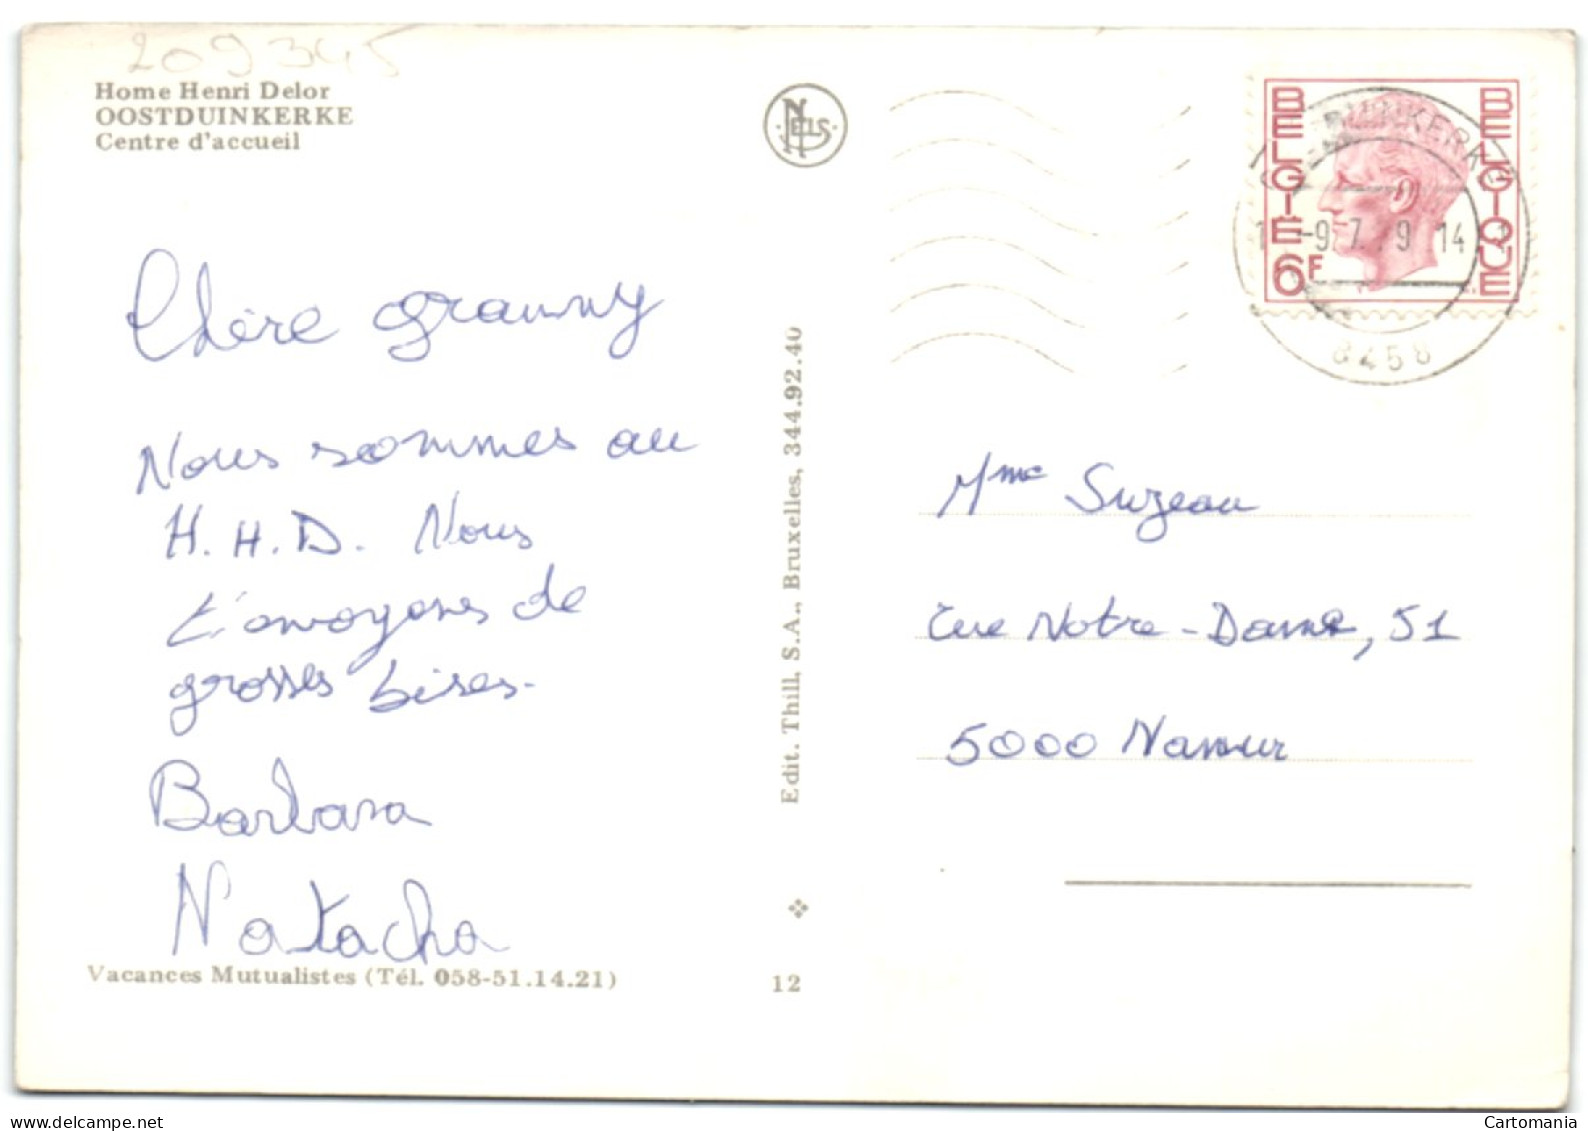 209345
Home Henri Delor
OOSTDUINKERKE
Centre d'accueil
Chère granny
Nous sommes au
H.H.D. Nous
t'envoyons de
grosses bises.
Barbara
Natacha
Vacances Mutualistes (Tél. 058-51.14.21)
NELS
Edit. Thill, S.A., Bruxelles, 344.92.40
12
BELGIË
BELGIQUE
6F
-9.7.79 14
8458
Mme Suzeau
rue Notre-Dame, 51
5000 Namur
Cartomania